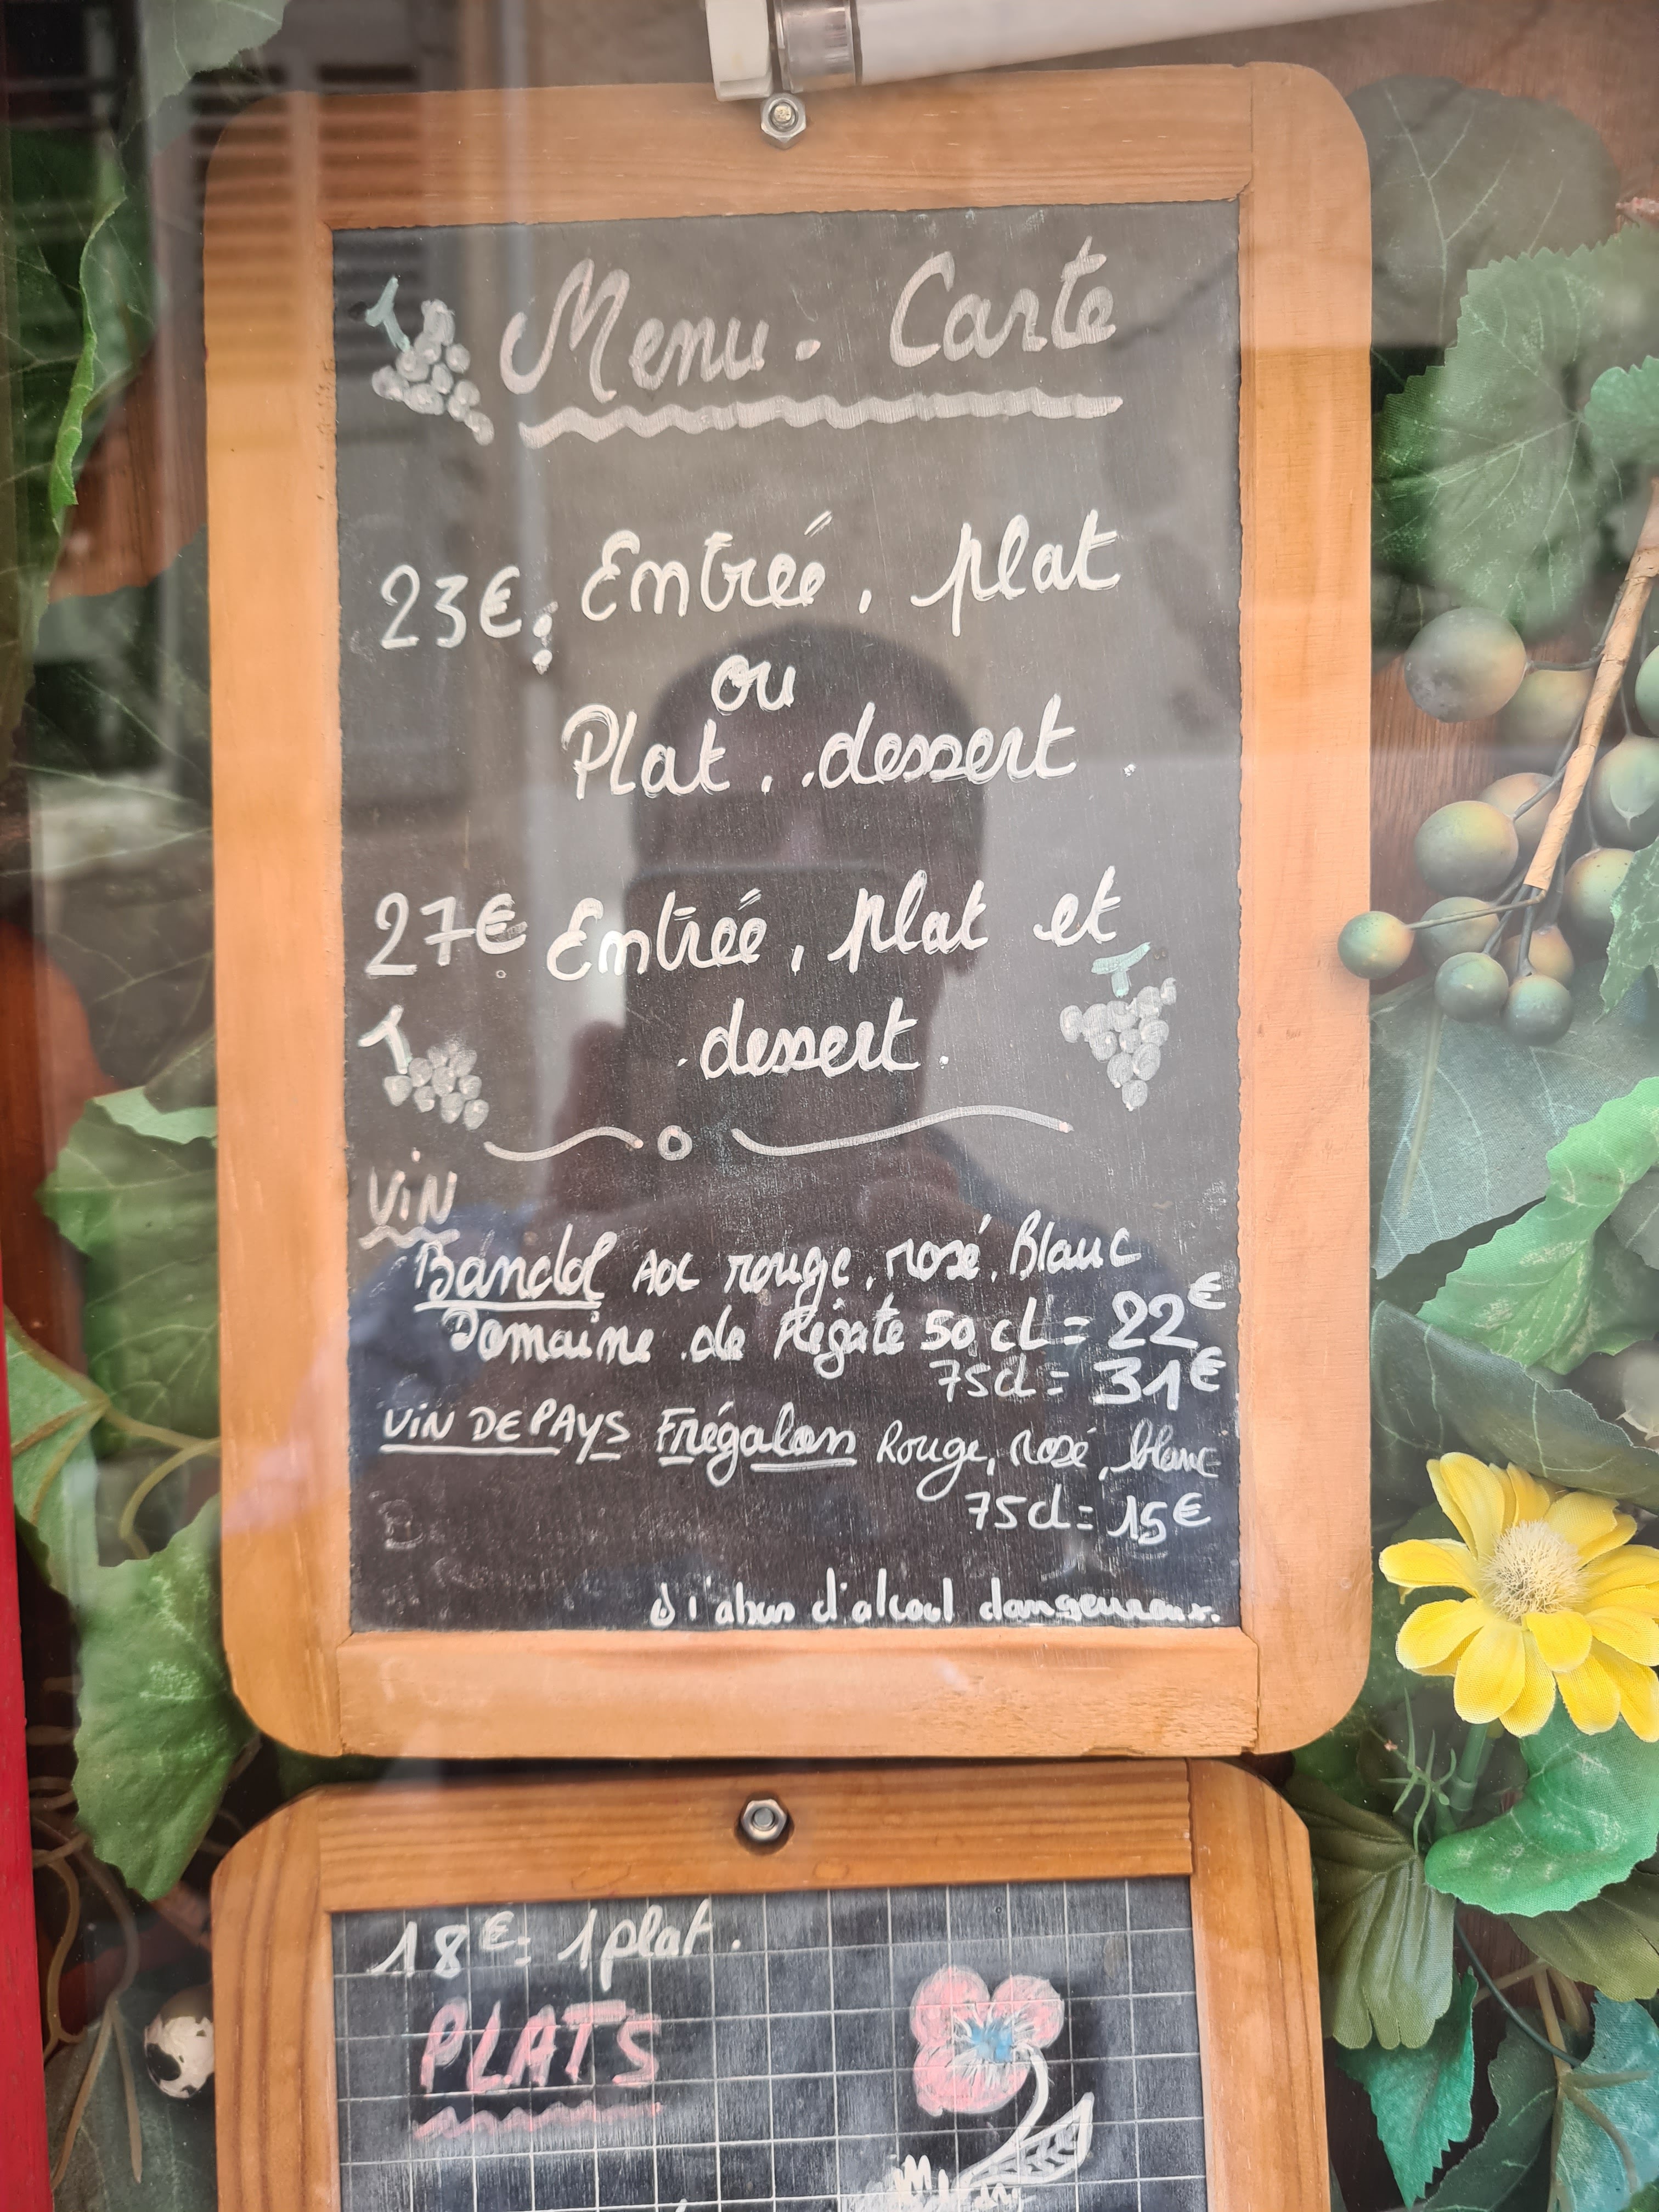 Menu. Carte
23€: Entrée, plat
ou
Plat, dessert.
27€ Entrée, plat et
dessert.
ViN
Bandol AOC rouge, rosé, Blanc
Domaine de Régate 50 cl = 22€
75cl = 31€
ViN DE PAYS Frégalon Rouge, rosé, blanc
75cl = 15€
l'abus d'alcool dangeureux.
18€: 1 plat.
PLATS